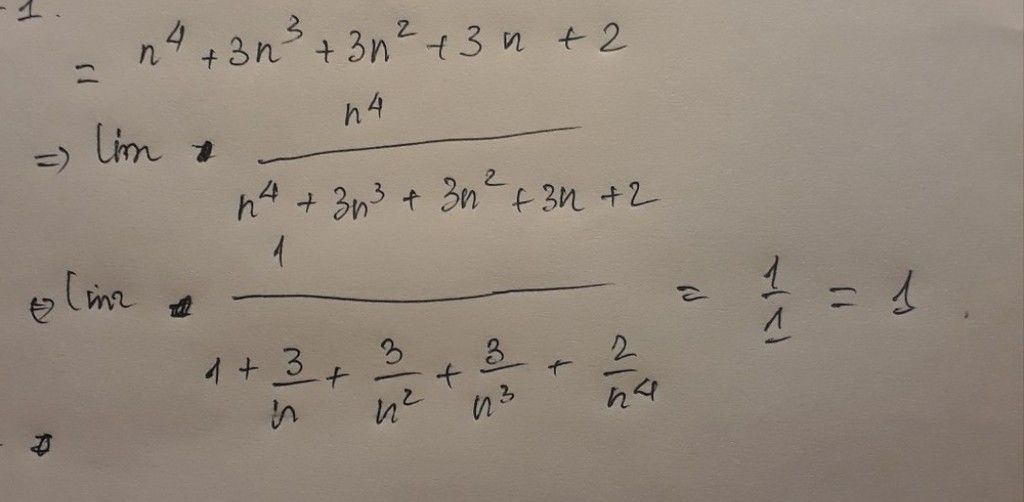 1.
= n⁴ + 3n³ + 3n² + 3n + 2
=> lim n⁴ / (n⁴ + 3n³ + 3n² + 3n + 2)
⇔ lim 1 / (1 + 3/n + 3/n² + 3/n³ + 2/n⁴) = 1/1 = 1.